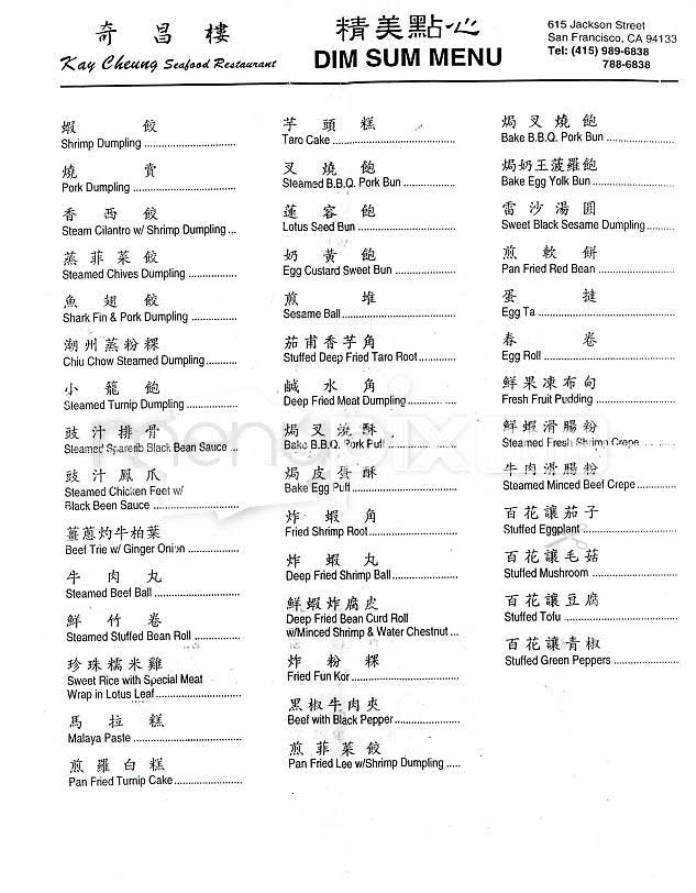 奇昌樓
Kay Cheung Seafood Restaurant
精美點心
DIM SUM MENU
615 Jackson Street
San Francisco, CA 94133
Tel: (415) 989-6838
788-6838
蝦餃
Shrimp Dumpling
燒賣
Pork Dumpling
香西餃
Steam Cilantro w/ Shrimp Dumpling
蒸菲菜餃
Steamed Chives Dumpling
魚翅餃
Shark Fin & Pork Dumpling
潮州蒸粉粿
Chiu Chow Steamed Dumpling
小籠飽
Steamed Turnip Dumpling
豉汁排骨
Steamed Sparerib Black Bean Sauce
豉汁鳳爪
Steamed Chicken Feet w/
Black Been Sauce
薑蔥灼牛柏葉
Beef Trie w/ Ginger Onion
牛肉丸
Steamed Beef Ball
鮮竹卷
Steamed Stuffed Bean Roll
珍珠糯米雞
Sweet Rice with Special Meat
Wrap in Lotus Leaf
馬拉糕
Malaya Paste
煎羅白糕
Pan Fried Turnip Cake
芋頭糕
Taro Cake
叉燒飽
Steamed B.B.Q. Pork Bun
蓮容飽
Lotus Seed Bun
奶黃飽
Egg Custard Sweet Bun
煎堆
Sesame Ball
茄甫香芋角
Stuffed Deep Fried Taro Root
鹹水角
Deep Fried Meat Dumpling
焗叉燒酥
Bake B.B.Q. Pork Puff
焗皮蛋酥
Bake Egg Puff
炸蝦角
Fried Shrimp Root
炸蝦丸
Deep Fried Shrimp Ball
鮮蝦炸腐皮
Deep Fried Bean Curd Roll
w/Minced Shrimp & Water Chestnut
炸粉粿
Fried Fun Kor
黑椒牛肉夾
Beef with Black Pepper
煎菲菜餃
Pan Fried Lee w/Shrimp Dumpling
焗叉燒飽
Bake B.B.Q. Pork Bun
焗奶王菠羅飽
Bake Egg Yolk Bun
雷沙湯圓
Sweet Black Sesame Dumpling
煎軟餅
Pan Fried Red Bean
蛋撻
Egg Ta
春卷
Egg Roll
鮮果凍布甸
Fresh Fruit Pudding
鮮蝦滑腸粉
Steamed Fresh Shrimp Crepe
牛肉滑腸粉
Steamed Minced Beef Crepe
百花讓茄子
Stuffed Eggplant
百花讓毛菇
Stuffed Mushroom
百花讓豆腐
Stuffed Tofu
百花讓青椒
Stuffed Green Peppers